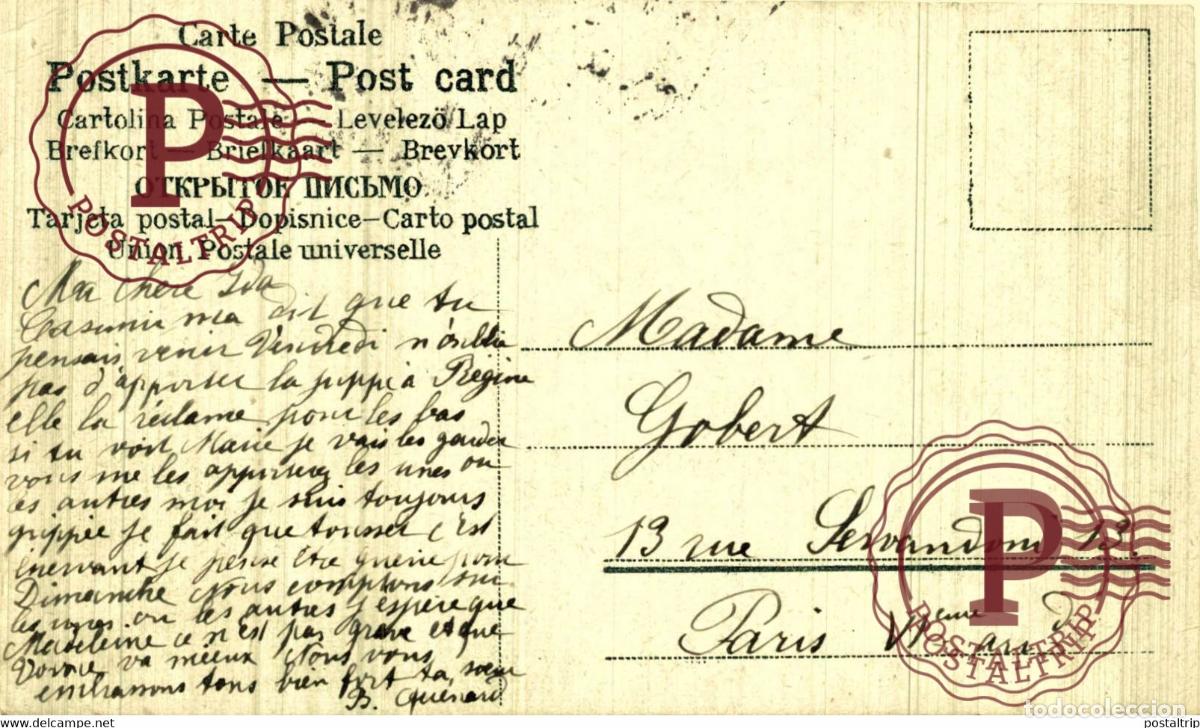 Carte Postale
Postkarte — Post card
Cartolina Postale — Levelező Lap
Brefkort — Briefkaart — Brevkort
ОТКРЫТОЕ ПИСЬМО
Tarjeta postal—Dopisnice—Carto postal
Union Postale universelle
P
POSTALTRIP
Ma chere Ida
Casimir ma dit que tu
pensais venir Vendredi n'oublie
pas d'apporter la puppé a Régine
elle la réclame pour les bas
si tu vois Marie je vais les garder
vous me les apporterez les unes ou
les autres moi je suis toujours
grippée je fait que tousser c'est
énervant je pense être guérie pour
Dimanche Nous comptons sur
les unes ou les autres j'espère que
Madeleine ce n'est pas grave et que
va mieux Nous vous
embrassons tous bien fort ta sœur
B. Guenard
Madame
Gobert
13 rue Servandoni 13.
Paris VIeme
P
POSTALTRIP
POSTALTRIP
todocoleccion
www.delcampe.net
postaltrip